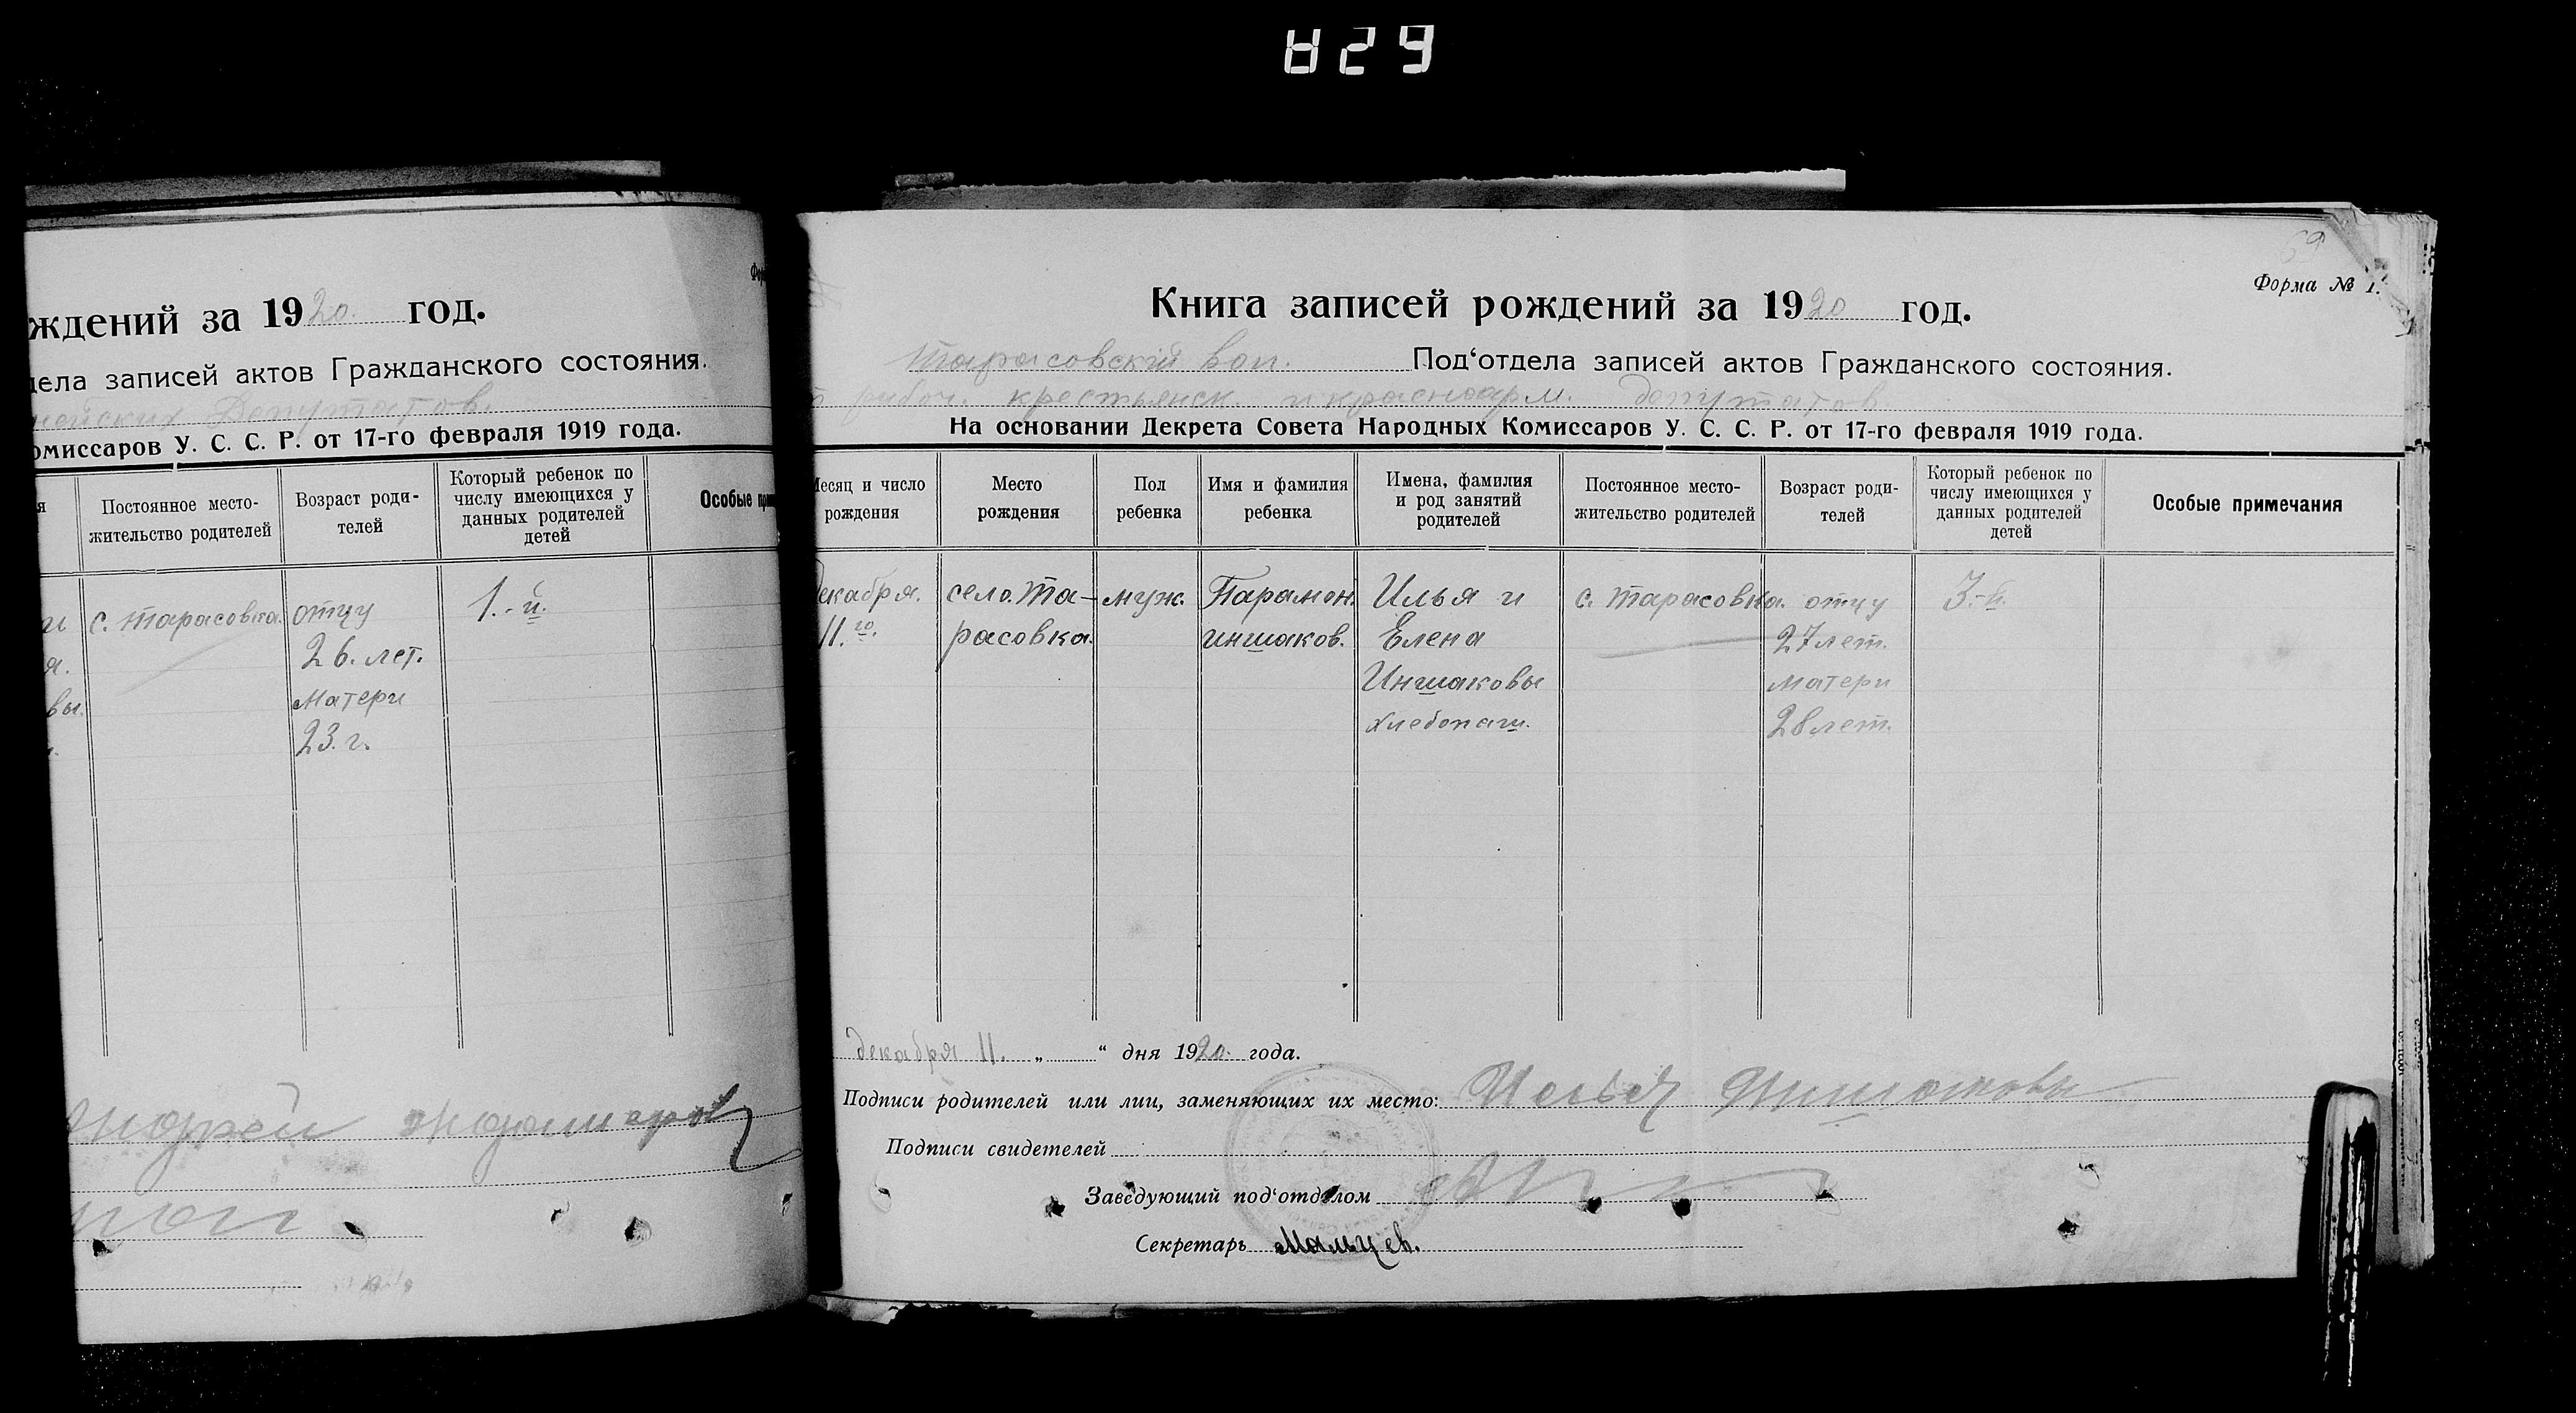 829
ждений за 1920. год.
дела записей актов Гражданского состояния.
мейских Депутатов.
омиссаров У. С. С. Р. от 17-го февраля 1919 года.
я
Постоянное место-
жительство родителей
Возраст роди-
телей
Который ребенок по
числу имеющихся у
данных родителей
детей
Особые при
и
я.
вы.
с. Тарасовка.
отцу
26. лет.
матери
23. г.
1.-й.
59
Форма № 1.
Книга записей рождений за 1920 год.
Тарасовскій вол. Под‘отдела записей актов Гражданского состояния.
рабоч. крестьянск. и красноарм. депутатов.
На основании Декрета Совета Народных Комиссаров У. С. С. Р. от 17-го февраля 1919 года.
Месяц и число
рождения
Место
рождения
Пол
ребенка
Имя и фамилия
ребенка
Имена, фамилия
и род занятий
родителей
Постоянное место-
жительство родителей
Возраст роди-
телей
Который ребенок по
числу имеющихся у
данных родителей
детей
Особые примечания
декабря.
11.го.
село Та-
расовка.
муж.
Парамон.
Иншаков.
Илья и
Елена
Иншаковы
хлебопаш.
с. Тарасовка.
отцу
27 лет.
матери
28 лет.
3.-й.
декабря 11. „ “ дня 1920. года.
Подписи родителей или лиц, заменяющих их место: Илья
Подписи свидетелей
Заведующий под‘отделом
Секретарь Мальцев.